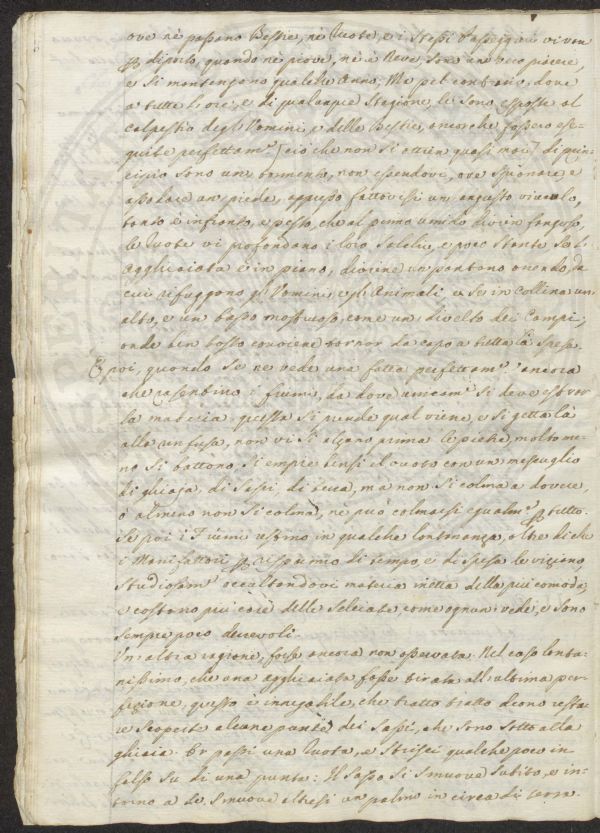 ove nè passano Bestie, nè Ruote, e i stessi Passeggieri vi van
diporto, quando nè piove, nè è Neve, sono un vero piacere,
e si mantengono qualche Anno; Ma pel contrario, dove
a tutte l'ore, e di qualunque Stagione, le sono esposte al
calpestio degli Uomini, e delle Bestie, ancorchè fossero ese-
guite perfettam.e [ciò che non si ottien quasi mai] di prin-
cipio sono un tormento, non essendovi, ove spianare e
assodare un piede, appresso fattovisi un angusto viottolo,
tanto è infranto, e pesto, che al primo umido divien fangoso,
le Ruote vi profondano i loro solchi, e poco stante la
Agghiajata è in piano, diviene un pantano orrendo, da
cui rifuggono gl'Uomini, e gli Animali, e se in collina un
alto, e un basso mostruoso, come un divelto dei Campi;
onde ben tosto conviene tornar da capo a tutta la spesa.
E poi, quando se ne vede una fatta perfettam.e? ancora
che rasentino i fiumi, da dove unicam.e si deve estrar
la materia questa si prende qual viene, e si getta là
alla rinfusa, non vi si alzano prima le pietre, molto me-
no si battono. Si empie bensì il vuoto con un mescuglio
di ghiaja, di Sassi, di terra, ma non si colma a dovere,
o almeno non si colma, nè può colmarsi egualm.e per tutto.
Se poi i Fiumi restino in qualche lontananza, oltre di che
i Manifattori per risparmio di tempo, e di spesa le viziano,
studiosam.e occultandovi materia inetta della più comoda,
e costano più care delle Selciate, come ognun vede, e sono
sempre poco durevoli.
Un'altra ragione, forse ancora non osservata. Nel caso lonta-
nissimo, che una agghiaiata fosse tirata all'ultima per-
fezione, questo è innegabile, che tratto tratto devono resta-
re scoperte alcune punte dei Sassi, che sono sotto alla
ghiaia. Or passi una Ruota, e strisci qualche poco in
falso su di una punta: Il Sasso si smuove subito, e in-
torno a se smuove altresì un palmo in circa di terra.